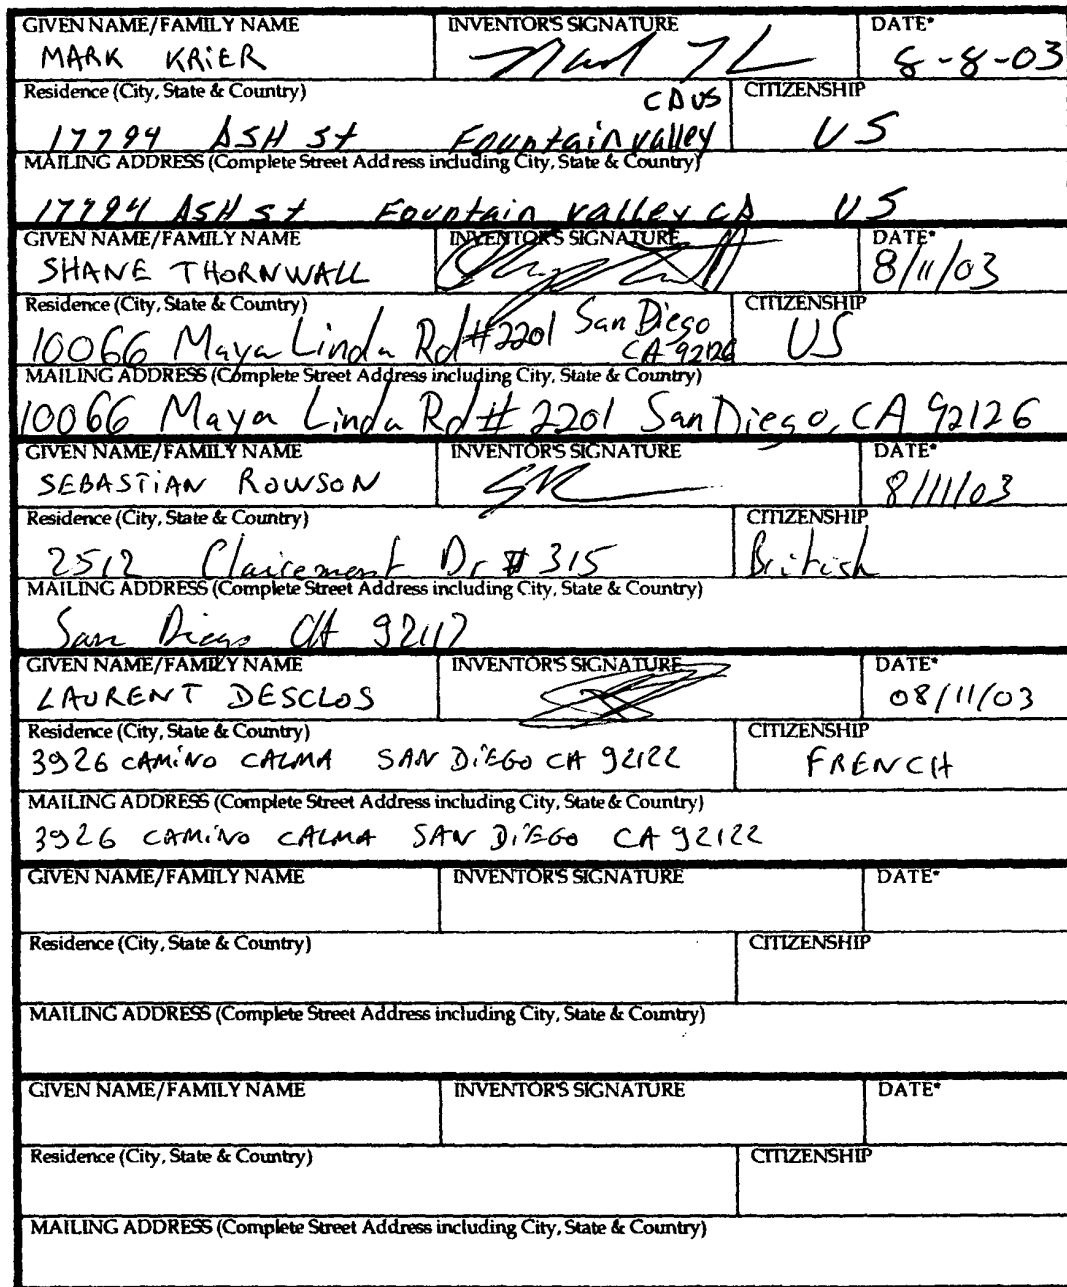 GIVEN NAME/FAMILY NAME INVENTOR'S SIGNATURE DATE*
MARK KRIER 8-8-03
Residence (City, State & Country) CITIZENSHIP
CA US
17794 ASH St Fountain valley US
MAILING ADDRESS (Complete Street Address including City, State & Country)
17794 ASH St Fountain valley CA US
GIVEN NAME/FAMILY NAME INVENTOR'S SIGNATURE DATE*
SHANE THORNWALL 8/11/03
Residence (City, State & Country) CITIZENSHIP
10066 Maya Linda Rd #2201 San Diego US
CA 92126
MAILING ADDRESS (Complete Street Address including City, State & Country)
10066 Maya Linda Rd # 2201 San Diego, CA 92126
GIVEN NAME/FAMILY NAME INVENTOR'S SIGNATURE DATE*
SEBASTIAN ROWSON 8/11/03
Residence (City, State & Country) CITIZENSHIP
2512 Clairemont Dr # 315 British
MAILING ADDRESS (Complete Street Address including City, State & Country)
San Diego CA 92117
GIVEN NAME/FAMILY NAME INVENTOR'S SIGNATURE DATE*
LAURENT DESCLOS 08/11/03
Residence (City, State & Country) CITIZENSHIP
3926 CAMINO CALMA SAN DIEGO CA 92122 FRENCH
MAILING ADDRESS (Complete Street Address including City, State & Country)
3926 CAMINO CALMA SAN DIEGO CA 92122
GIVEN NAME/FAMILY NAME INVENTOR'S SIGNATURE DATE*
Residence (City, State & Country) CITIZENSHIP
MAILING ADDRESS (Complete Street Address including City, State & Country)
GIVEN NAME/FAMILY NAME INVENTOR'S SIGNATURE DATE*
Residence (City, State & Country) CITIZENSHIP
MAILING ADDRESS (Complete Street Address including City, State & Country)